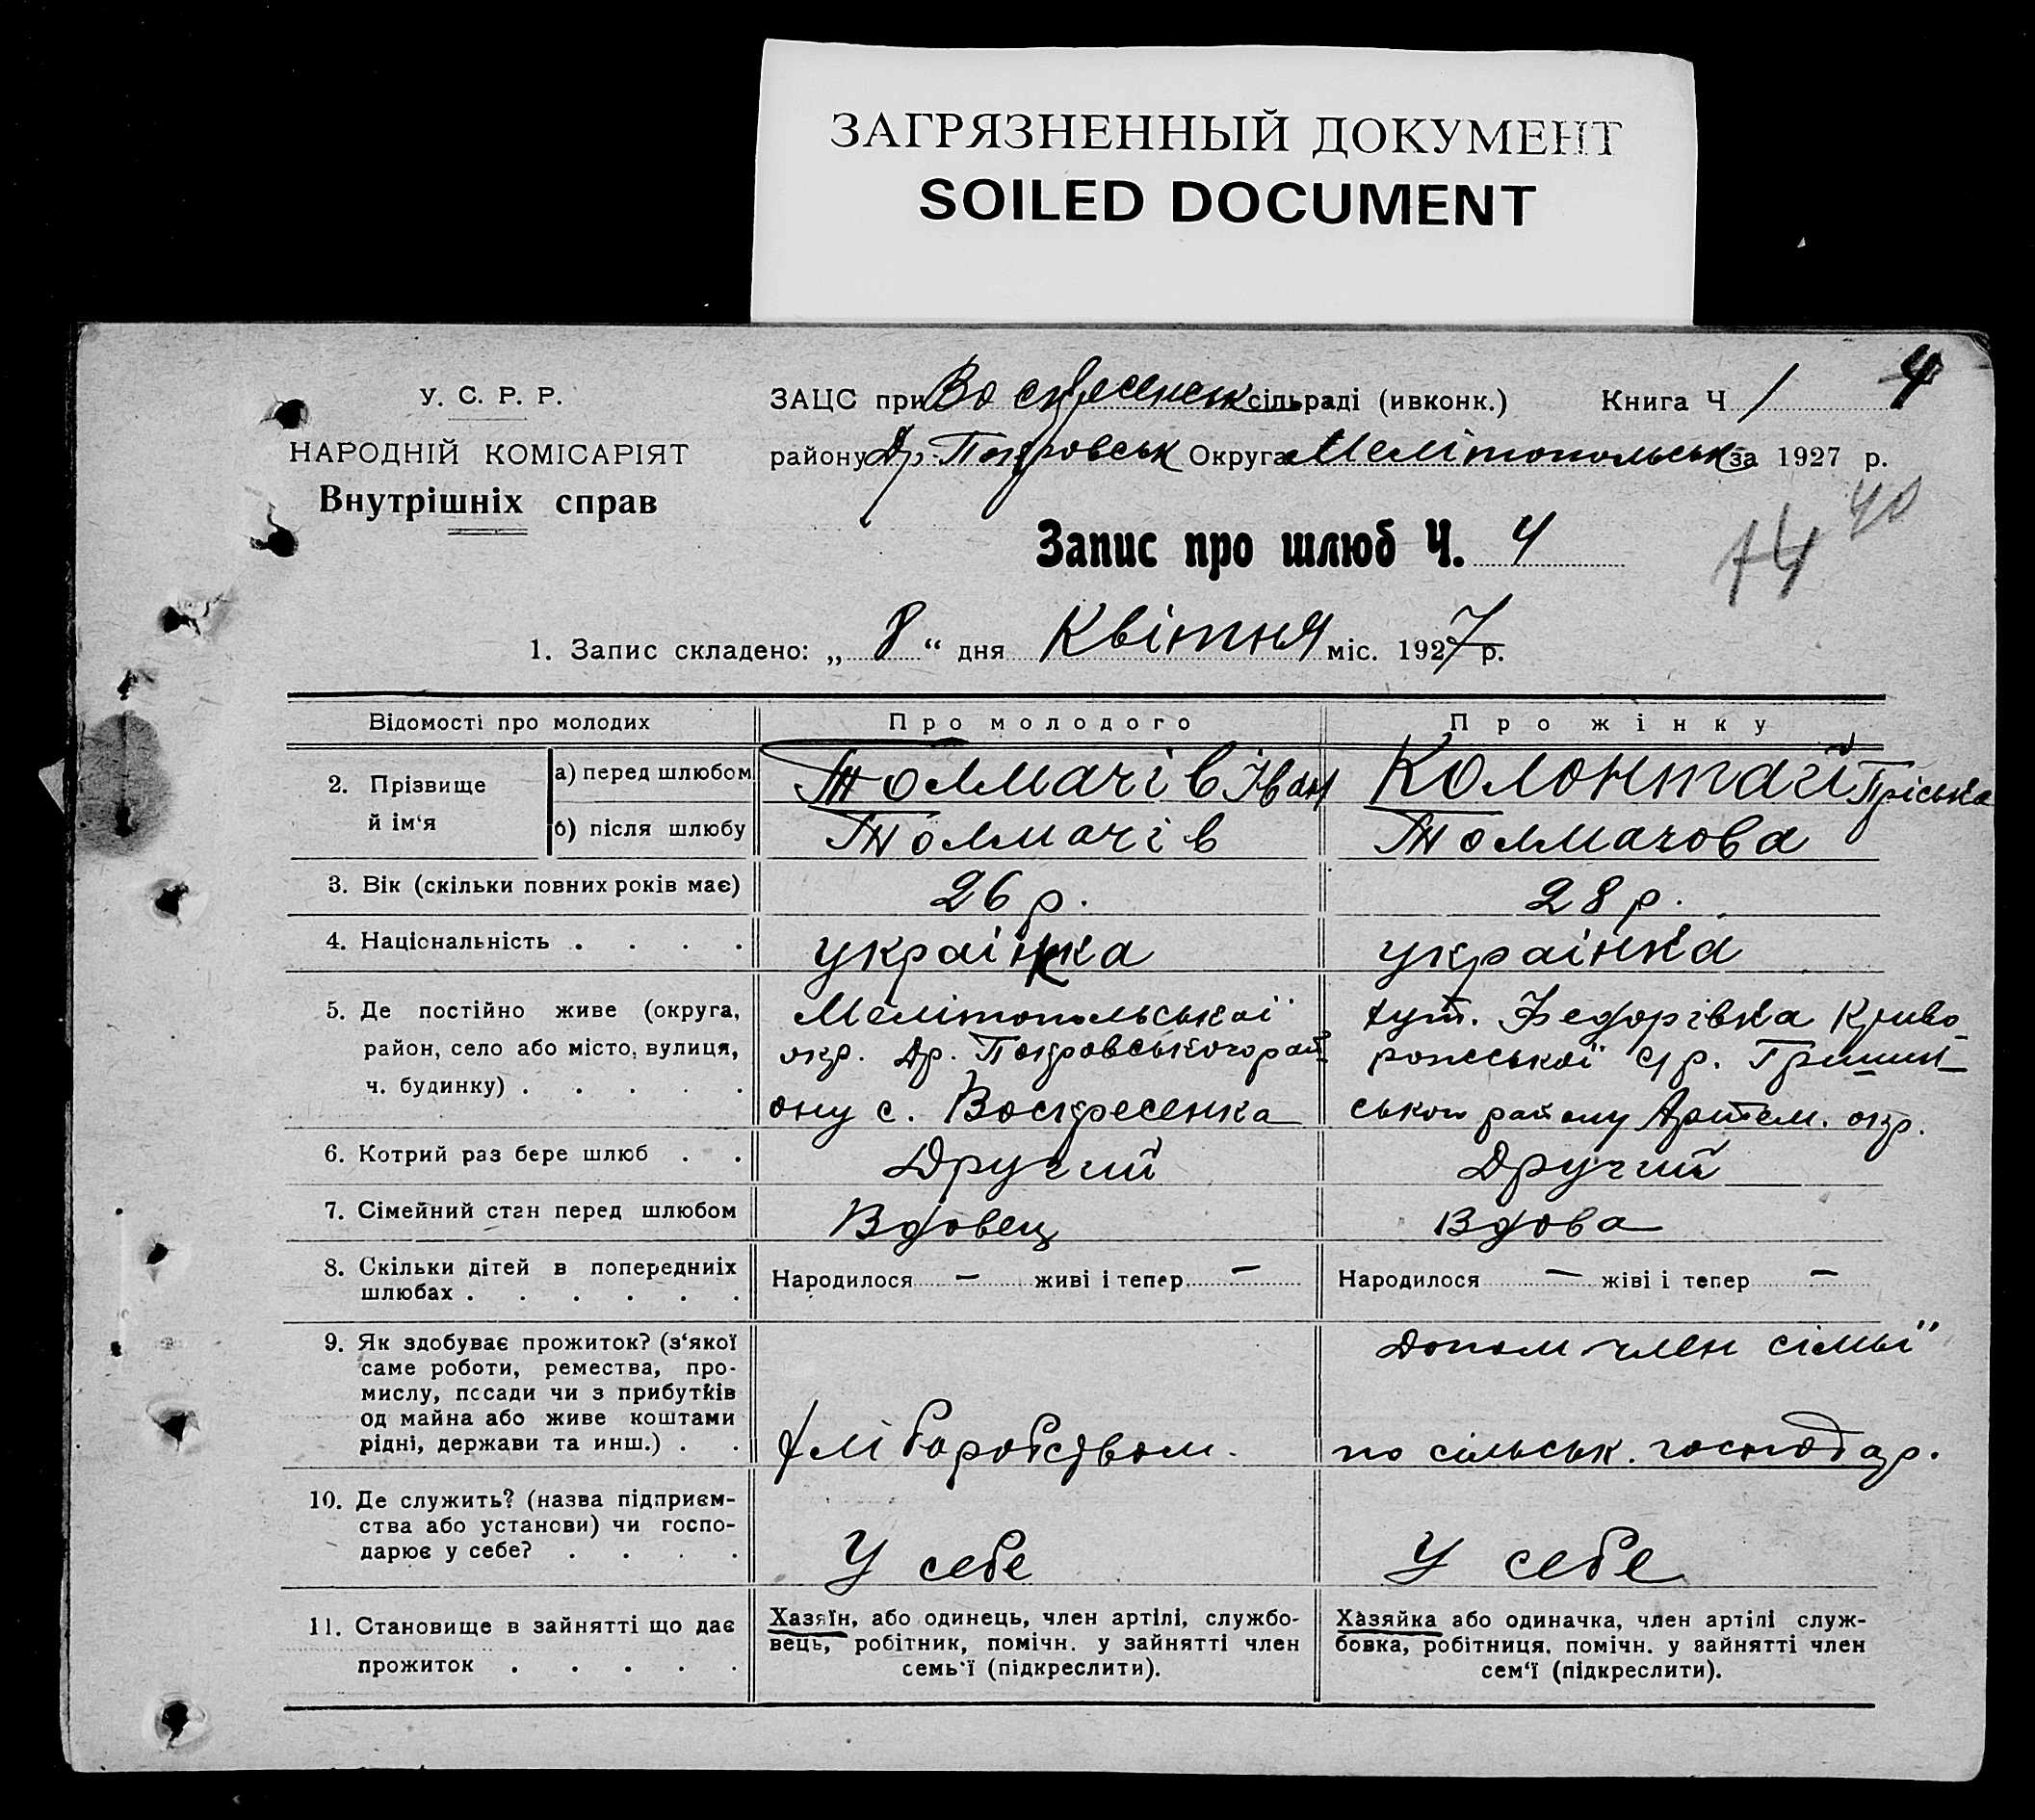 ЗАГРЯЗНЕННЫЙ ДОКУМЕНТ
SOILED DOCUMENT
У. С. Р. Р.
НАРОДНІЙ КОМІСАРІЯТ
Внутрішніх справ
ЗАЦС при Воскресенськ сільраді (ивконк.) Книга Ч 1 4
району Др-Покровськ Округа Мелітопольськ за 1927 р.
44 40
Запис про шлюб Ч. 4
1. Запис складено: „ 8 “ дня Квітня міс. 1927 р.
Відомості про молодих Про молодого Про жінку
2. Прізвище й ім‘я
а) перед шлюбом Толмачів Іван Колонтай Пріська
б) після шлюбу Толмачів Толмачова
3. Вік (скільки повних років має) 26 р. 28 р.
4. Національність . . . . українка українка
5. Де постійно живе (округа,
район, село або місто, вулиця,
ч. будинку) . . . . .
Мелітопольськоі
окр. Др. Покровського рай
ону с. Воскресенка
хут. Федорівка Криво
рожськоі с/р. Гришин
ського району Артем. окр.
6. Котрий раз бере шлюб . . Другий Другий
7. Сімейний стан перед шлюбом Вдовец Вдова
8. Скільки дітей в попередниіх
шлюбах . . . . . .
Народилося — живі і тепер —
Народилося — жіві і тепер —
9. Як здобуває прожиток? (з‘якої
саме роботи, ремества, про-
мислу, посади чи з прибутків
од майна або живе коштами
рідні, держави та инш.) . .
хліборобством.
Допом член сімьї
по сільськ. господар.
10. Де служить? (назва підприєм-
ства або установи) чи госпо-
дарює у себе? . . . .
У себе
У себе
11. Становище в зайнятті що дає
прожиток . . . . .
Хазяїн, або одинець, член артілі, службо-
вець, робітник, помічн. у зайнятті член
семь‘ї (підкреслити).
Хазяйка або одиначка, член артілі служ-
бовка, робітниця, помічн. у зайнятті член
сем‘ї (підкреслити).